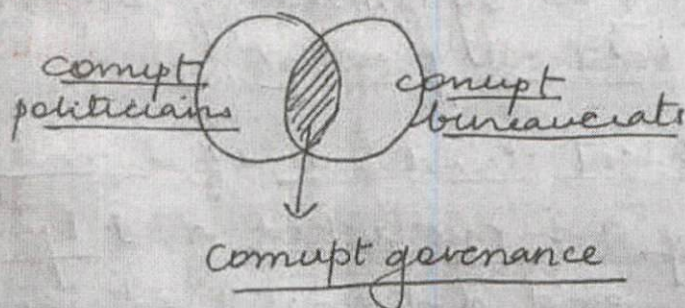 corrupt
politicians
corrupt
bureaucrats
corrupt govenance